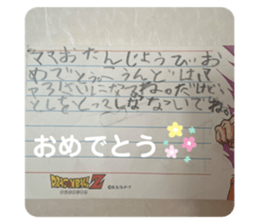 ママおたんじょうびお
めでとう。こんどはけして
さいになるね。だけど
としをとってしなないでね。
おめでとう
DRAGONBALL Z